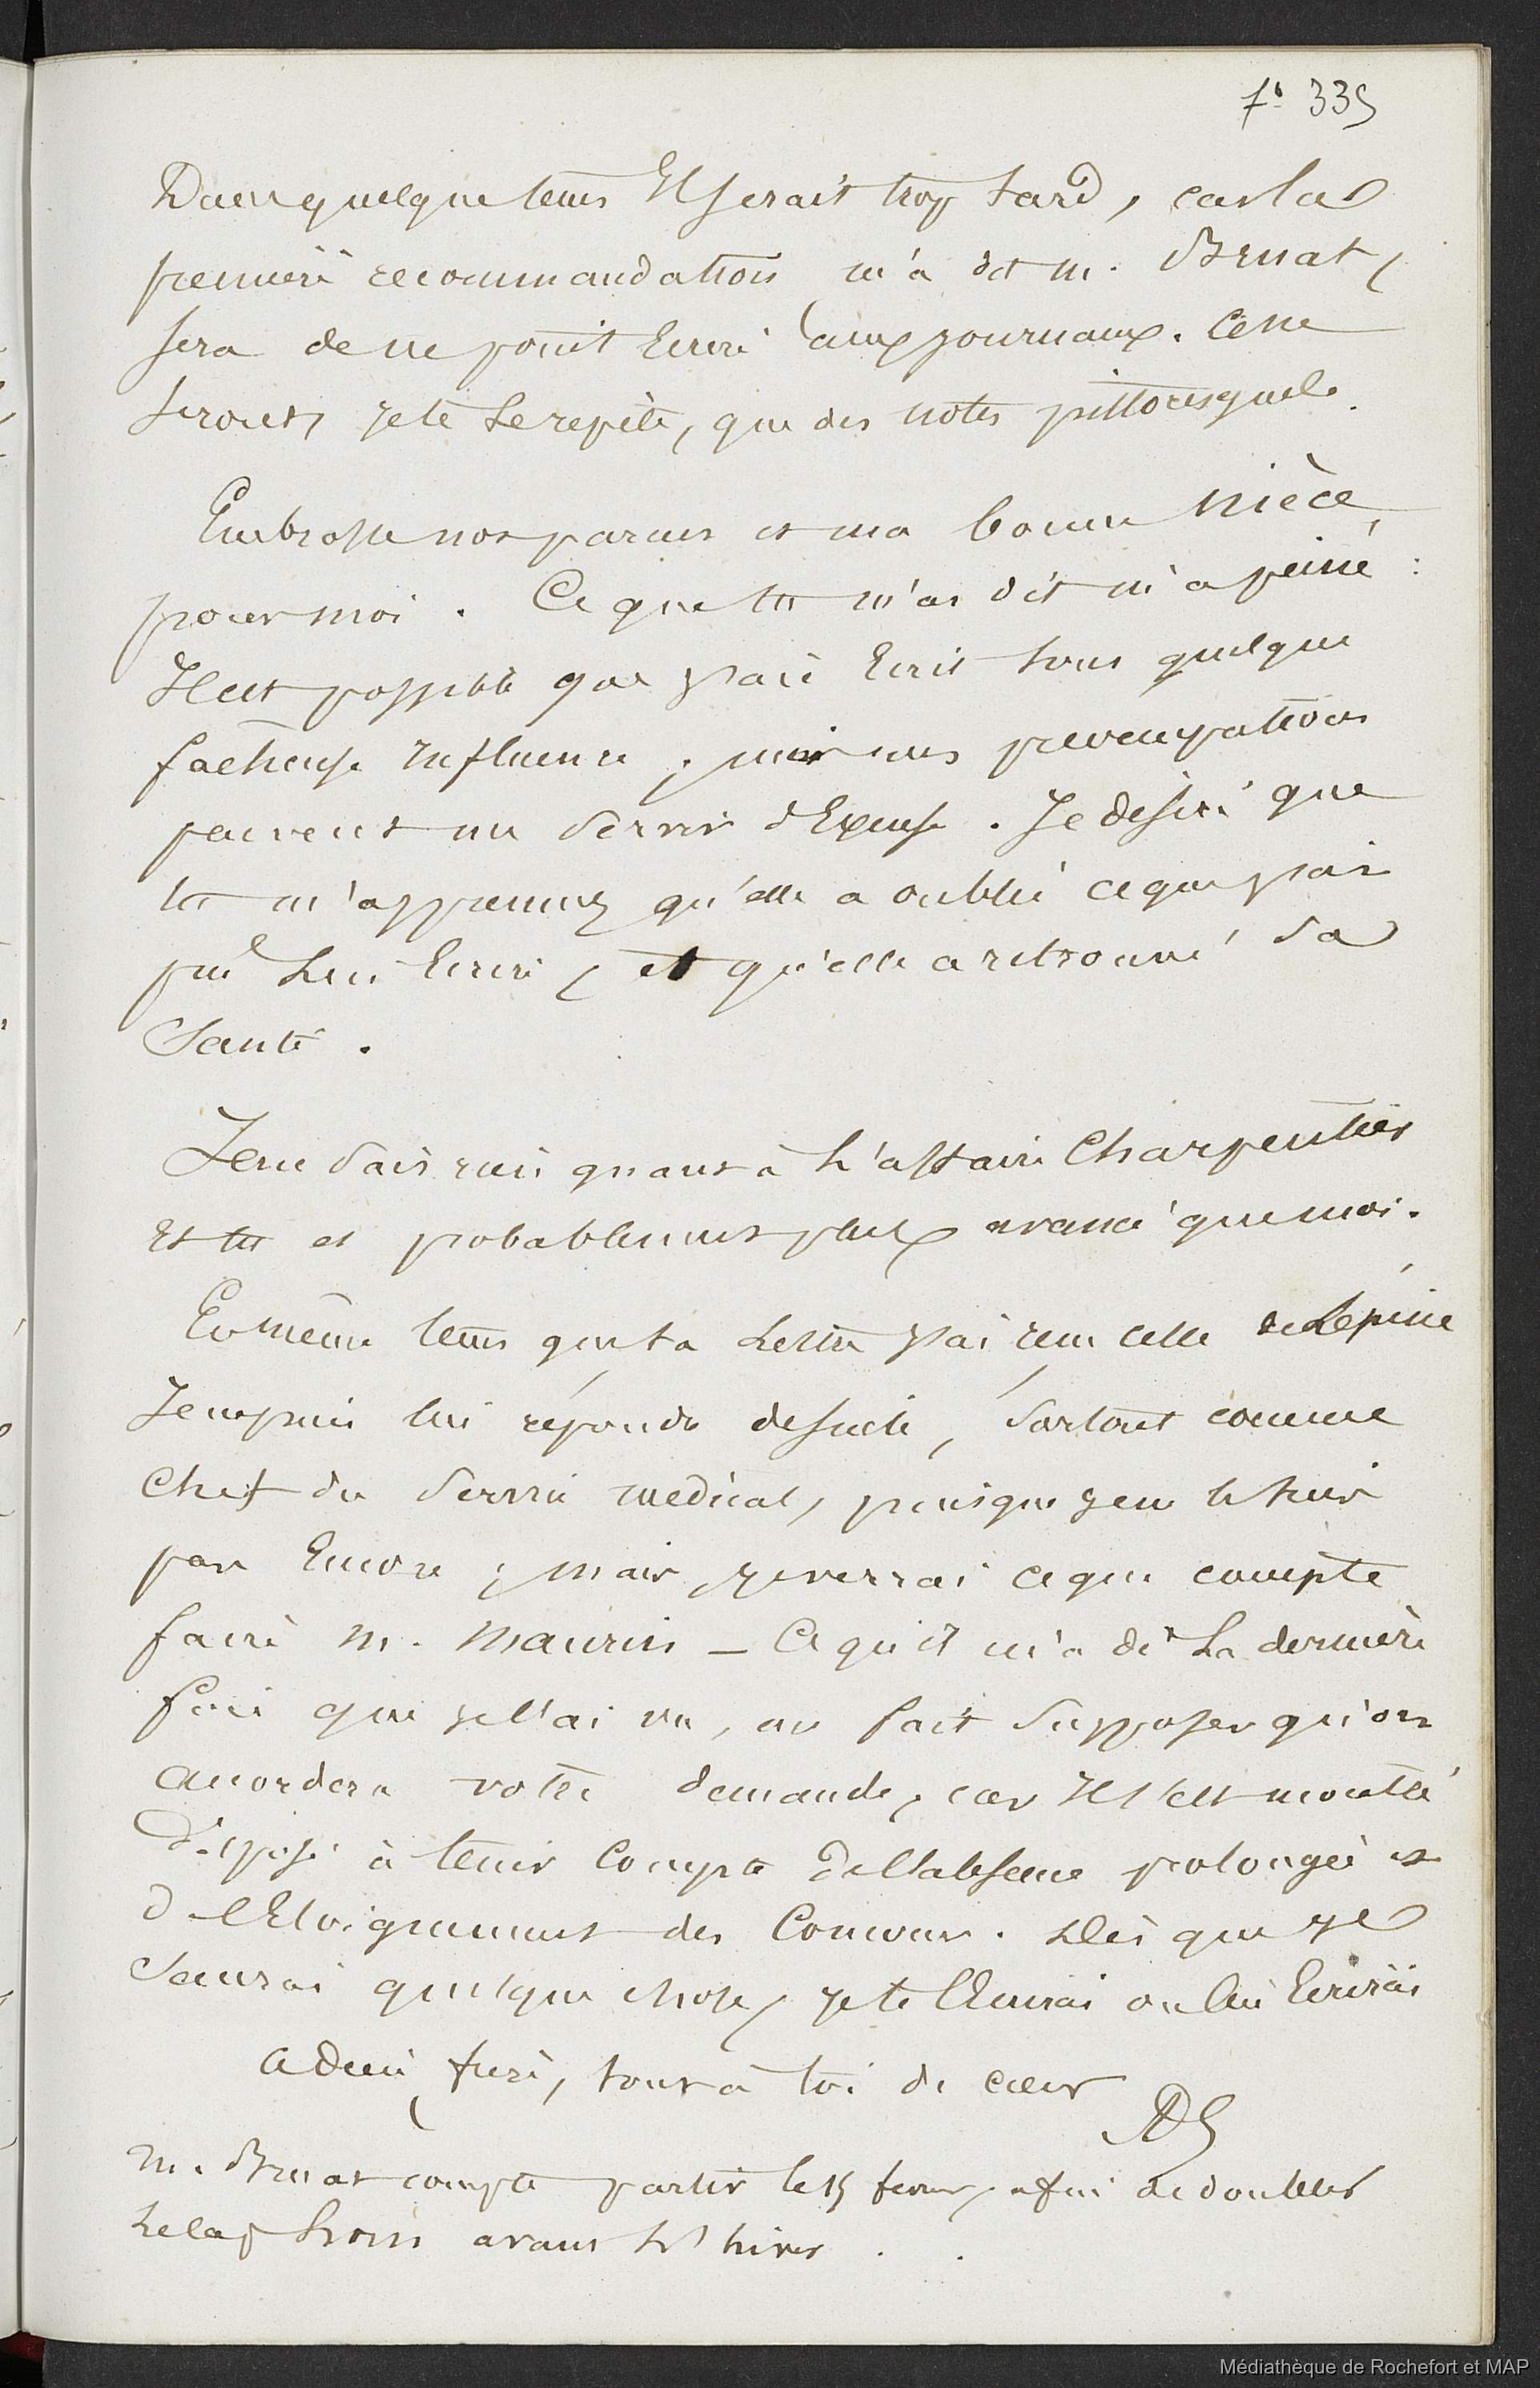 f° 335
Dans quelque tems Il serait trop tard, car la
première recommandation m'a dit m. Bruat,
sera de ne point Ecrire aux journaux. Ce ne
seront, je te le repète, que des notes pittoresques.
Embrasse nos parens et ma bonne nièce,
pour moi. Ce que tu m'as dit m'a peiné :
Il est possible que j'aie Ecrit sous quelque
facheuse Influence, mais mes preocupations
peuvent me servir d'Excuse. Je desire que
tu m'apprennes qu'elle a oublié ce que j'ai
pu lui Ecrire, et qu'elle a retrouvé sa
Santé.
Je ne sais rien quant à l'affaire Charpentier
Et tu es probablement plus avancé que moi.
En même tems que ta Lettre j'ai reçu celle de Lépine
Je ne puis lui répondre de suite, surtout comme
Chef du Service médical, puisque je ne le suis
pas Encore ; mais je verrai ce que compte
faire M. Maurin _ Ce qu'il m'a dit la dernière
fois que je l'ai vu, me fait supposer qu'on
accordera votre demande, car Il s'est montré
disposé à tenir Compte de l'absence prolongée et
de l'Eloignement des Concours. Dès que je
Saurai quelque chose, je te l'Ecrirai ou lui Ecrirai
adieu frère, tout à toi de cœur
m. Bruat compte partir le 15 fevrier, afin de doubler
le Cap horn avant l'hiver.
Médiathèque de Rochefort et MAP